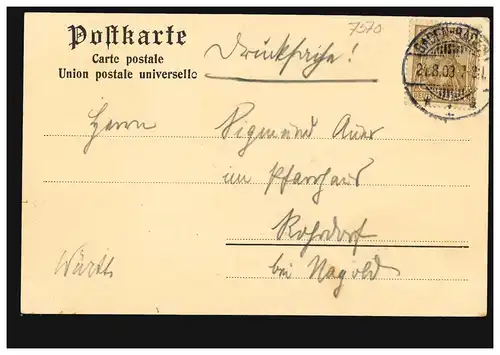 7570
Postkarte
Carte postale
Union postale universelle
Drucksache!
BADEN-BADEN
Herrn
Sigmund Auer
im Pfarrhaus
Rohrdorf
bei Nagold
Württ.